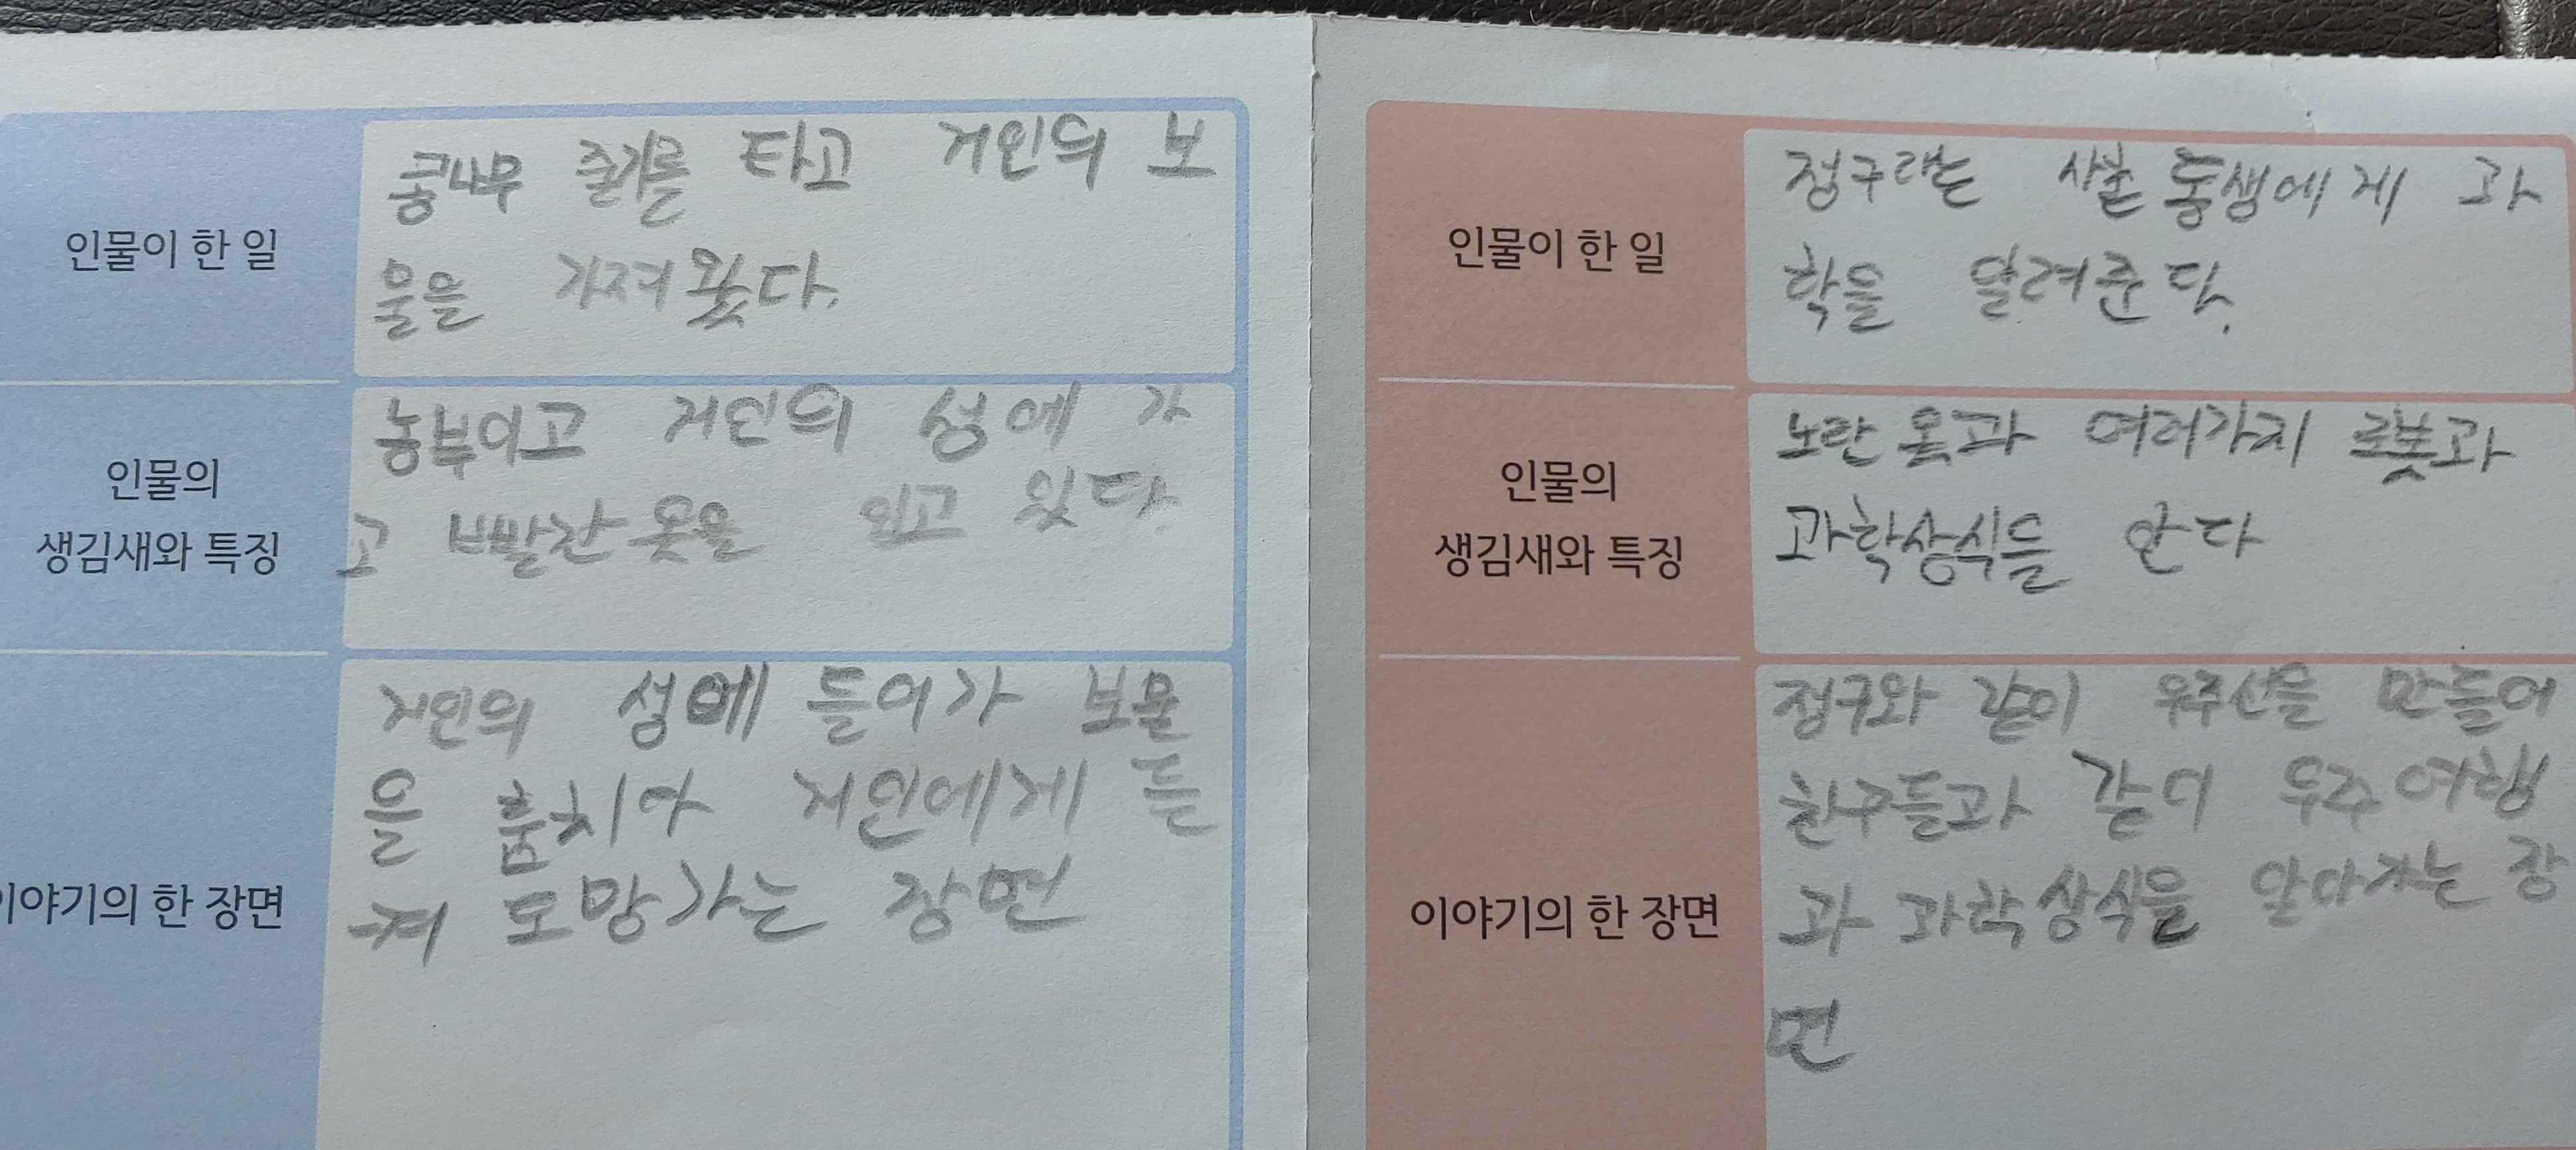 인물이 한 일
콩나무 줄기를 타고 거인의 보
물을 가져왔다.
인물의
생김새와 특징
농부이고 거인의 성에 가
고 빨간 옷을 입고 있다.
이야기의 한 장면
거인의 성에 들어가 보물
을 훔치다 거인에게 들
켜 도망가는 장면
인물이 한 일
정구라는 사촌동생에게 과
학을 알려준다.
인물의
생김새와 특징
노란 옷과 여러가지 로봇과
과학상식들 안다
이야기의 한 장면
정구와 같이 우주선을 만들어
친구들과 같이 우주 여행
과 과학상식을 알아가는 장
면